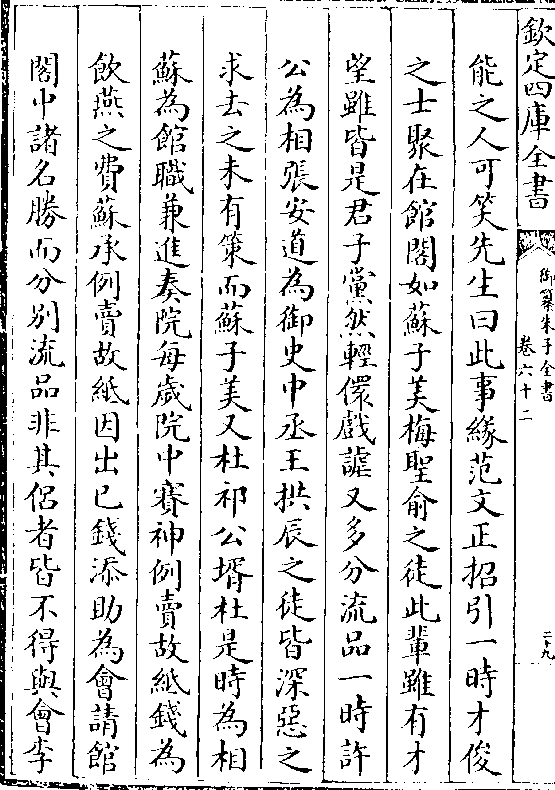 欽定四庫全書
御纂朱子全書
卷六十二
二十九
能之人可笑先生曰此事緣范文正招引一時才俊
之士聚在館閣如蘇子美梅聖俞之徒此輩雖有才
望雖皆是君子黨然輕儇戲謔又多分流品一時許
公為相張安道為御史中丞王拱辰之徒皆深惡之
求去之未有策而蘇子美又杜祁公壻杜是時為相
蘇為館職兼進奏院每歲院中賽神例賣故紙錢為
飲燕之費蘇承例賣故紙因出已錢添助為會請館
閣中諸名勝而分别流品非其侶者皆不得與會李